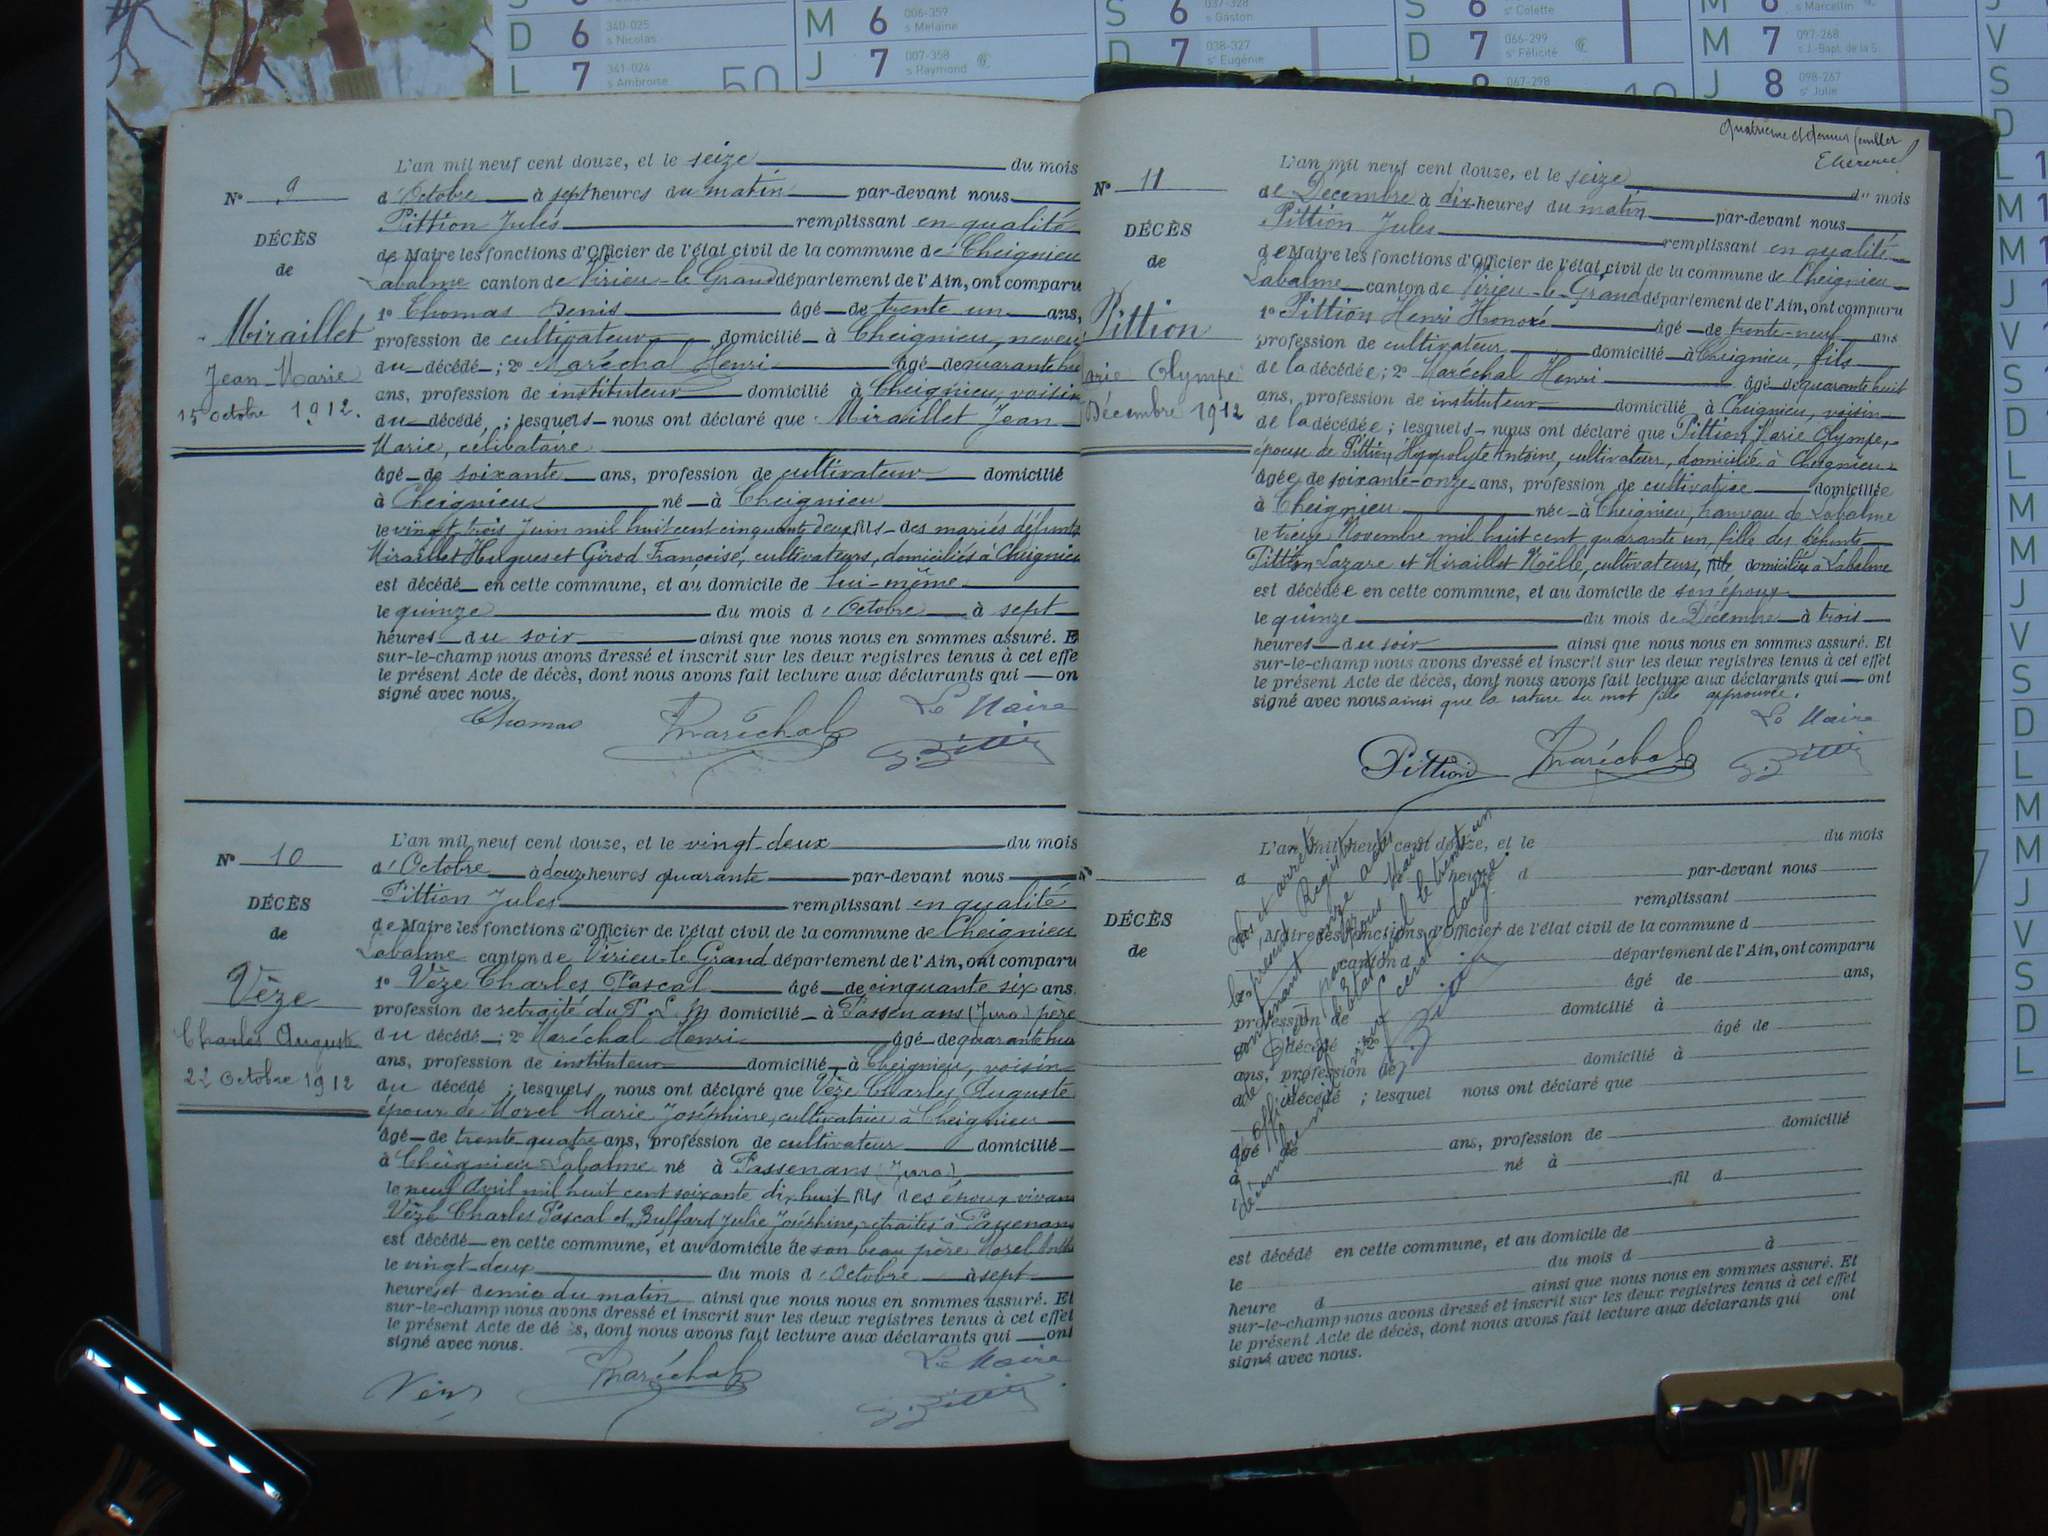 D 6 340-025 s Nicolas
L 7 341-024 s Ambroise
50
M 6 006-359 s Melaine
J 7 007-358 s Raymond
S 6 037-328 s Gaston
D 7 038-327 se Eugénie
S 6 se Colette
D 7 066-299 se Félicité
8 067-298
10
M 6 s Marcellin
M 7 097-268 s J.-Bapt. de la S.
J 8 098-267 se Julie
L'an mil neuf cent douze, et le seize du mois
N° 9 d'Octobre à sept heures du matin par-devant nous
Pittion Jules remplissant en qualité
DÉCÈS
de Maire les fonctions d'Officier de l'état civil de la commune de Cheignieu
de
Labalme canton de Virieu-le-Grand département de l'Ain, ont comparu
1° Thomas Denis âgé de trente un ans,
Miraillet
profession de cultivateur domicilié à Cheignieu, neveu
Jean-Marie
du décédé ; 2° Maréchal Henri âgé de quarante hu
15 octobre 1912.
ans, profession de instituteur domicilié à Cheignieu, voisin
du décédé ; lesquels nous ont déclaré que Miraillet Jean
Marie, célibataire
âgé de soixante ans, profession de cultivateur domicilié
à Cheignieu né à Cheignieu
le vingt-trois Juin mil huit cent cinquante deux fils des mariés défunts
Miraillet Hugues et Girod Françoise, cultivateurs, domiciliés à Cheignieu
est décédé en cette commune, et au domicile de lui-même
le quinze du mois d'Octobre à sept
heures du soir ainsi que nous nous en sommes assuré. E
sur-le-champ nous avons dressé et inscrit sur les deux registres tenus à cet effe
le présent Acte de décès, dont nous avons fait lecture aux déclarants qui on
signé avec nous.
Thomas Maréchal Le Maire
J. Pittion
L'an mil neuf cent douze, et le vingt-deux du mois
N° 10 d'Octobre à douze heures quarante par-devant nous
Pittion Jules remplissant en qualité
DÉCÈS
de Maire les fonctions d'Officier de l'état civil de la commune de Cheignieu
de
Labalme canton de Virieu-le-Grand département de l'Ain, ont comparu
1° Vèze Charles Pascal âgé de cinquante six ans
Vèze
profession de retraité du P. L. M domicilié à Passenans (Jura) père
Charles Auguste
du décédé ; 2° Maréchal Henri âgé de quarante hui
22 Octobre 1912
ans, profession de instituteur domicilié à Cheignieu, voisin
du décédé ; lesquels nous ont déclaré que Vèze Charles Auguste
époux de Morel Marie Joséphine, cultivatrice à Cheignieu
âgé de trente quatre ans, profession de cultivateur domicilié
à Cheignieu Labalme né à Passenans (Jura)
le neuf Avril mil huit cent soixante dix huit fils des époux vivans
Vèze Charles Pascal et Buffard Julie Joséphine, retraités à Passenans
est décédé en cette commune, et au domicile de son beau père Morel
le vingt-deux du mois d'Octobre à sept
heures et demie du matin ainsi que nous nous en sommes assuré. Et
sur-le-champ nous avons dressé et inscrit sur les deux registres tenus à cet effet
le présent Acte de décès, dont nous avons fait lecture aux déclarants qui ont
signé avec nous.
Vèze Maréchal Le Maire
J. Pittion
Quatrième et dernier feuillet
L'an mil neuf cent douze, et le seize du mois
N° 11 de Décembre à dix heures du matin par-devant nous
Pittion Jules remplissant en qualité
DÉCÈS
de Maire les fonctions d'Officier de l'état civil de la commune de Cheignieu
de
Labalme canton de Virieu-le-Grand département de l'Ain, ont comparu
1° Pittion Henri Honoré âgé de trente-neuf ans
Pittion
profession de cultivateur domicilié à Cheignieu, fils
arie Olympe
de la décédée ; 2° Maréchal Henri âgé de quarante huit
Décembre 1912
ans, profession de instituteur domicilié à Cheignieu, voisin
de la décédée ; lesquels nous ont déclaré que Pittion Marie Olympe,
épouse de Pittion Hyppolyte Antoine, cultivateur, domicilié à Cheignieu
âgée de soixante-onze ans, profession de cultivatrice domiciliée
à Cheignieu née à Cheignieu, hameau de Labalme
le treize Novembre mil huit cent quarante un, fille des défunts
Pittion Lazare et Miraillet Noëlle, cultivateurs, fille domiciliés à Labalme
est décédée en cette commune, et au domicile de son époux
le quinze du mois de Décembre à trois
heures du soir ainsi que nous nous en sommes assuré. Et
sur-le-champ nous avons dressé et inscrit sur les deux registres tenus à cet effet
le présent Acte de décès, dont nous avons fait lecture aux déclarants qui ont
signé avec nous ainsi que la rature du mot fille approuvée.
Pittion Maréchal Le Maire
J. Pittion
L'an mil neuf cent douze, et le du mois
N° d heure d par-devant nous
remplissant
DÉCÈS
Maire les fonctions d'Officier de l'état civil de la commune d
de
canton d département de l'Ain, ont comparu
âgé de ans,
profession de domicilié à
décédé 2° âgé de
ans, profession de domicilié à
d décédé ; lesquel nous ont déclaré que
âgé de ans, profession de domicilié
à né à
l fil d
est décédé en cette commune, et au domicile de
le du mois d à
heure d ainsi que nous nous en sommes assuré. Et
sur-le-champ nous avons dressé et inscrit sur les deux registres tenus à cet effet
le présent Acte de décès, dont nous avons fait lecture aux déclarants qui ont
signé avec nous.
Clos et arrêté
le présent Registre
contenant onze actes
de par nous Maire
Officier de l'Etat civil le trente un
décembre mil neuf cent douze.
J. Pittion